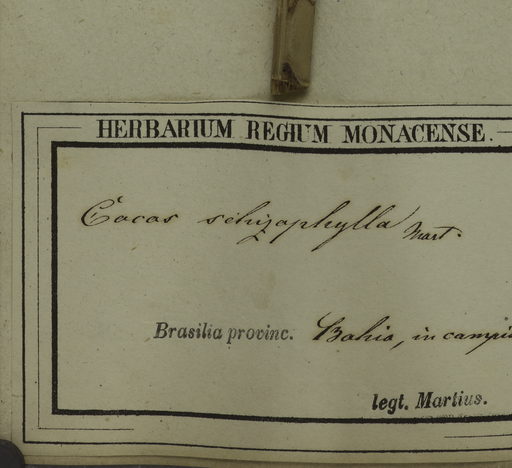 HERBARIUM REGIUM MONACENSE.
Cocos schizophylla Mart.
Brasilia provinc. Bahia, in campis
legt. Martius.